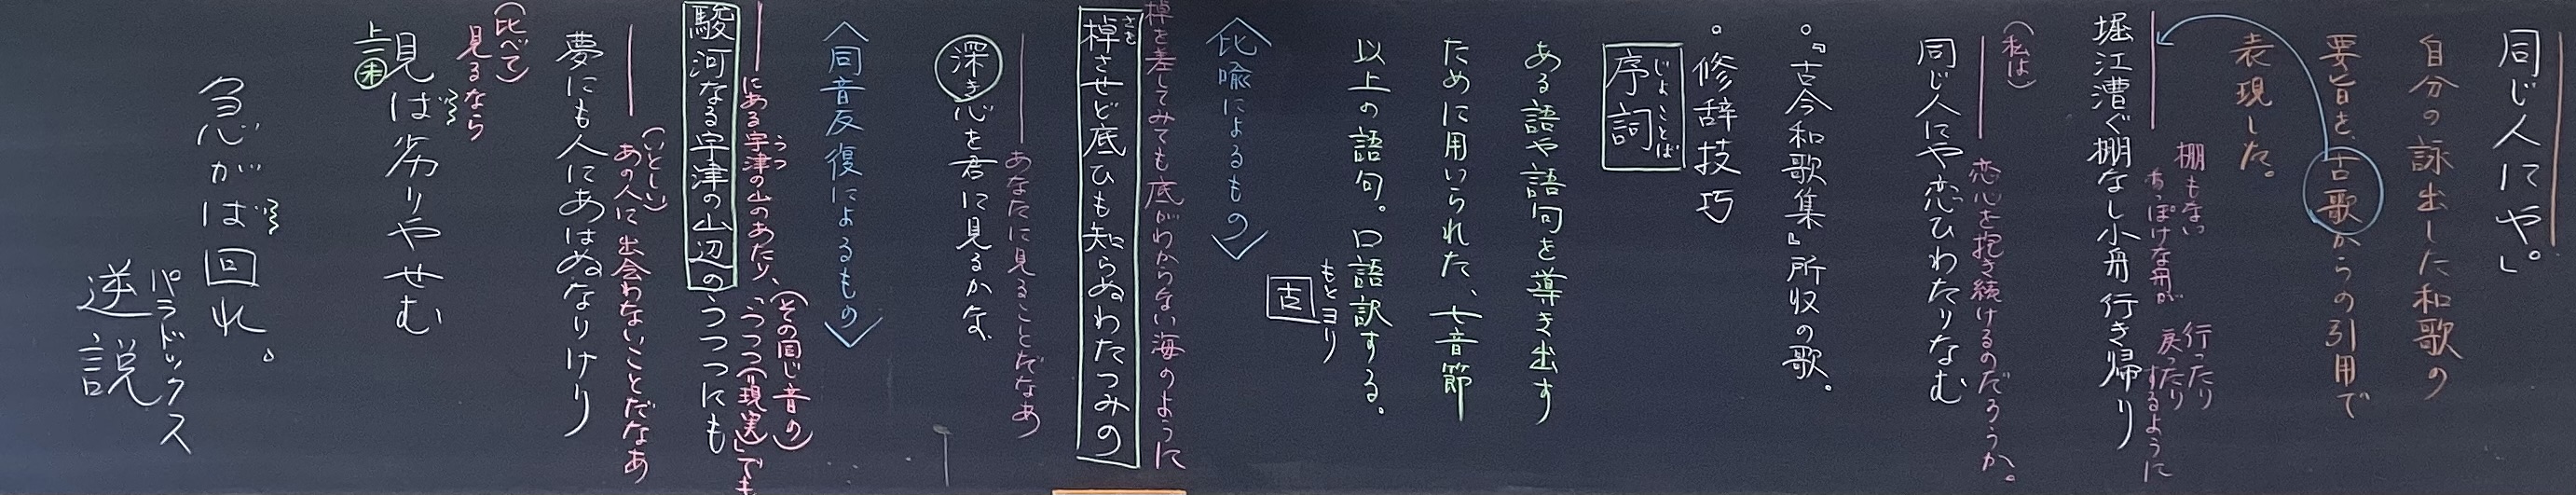 同じ人にや。」
自分の詠出した和歌の
要旨を、古歌からの引用で
表現した。
棚もない
ちっぽけな舟が
行ったり
戻ったり
するように
堀江漕ぐ棚なし小舟行き帰り
(私は)
恋心を抱き続けるのだろうか。
同じ人にや恋ひわたりなむ
。『古今和歌集』所収の歌。
。修辞技巧
じょことば
序詞
ある語や語句を導き出す
ために用いられた、七音節
以上の語句。口語訳する。
もとヨリ
古
〈比喩によるもの〉
棹を差してみても底がわからない海のように
さを
棹させど底ひも知らぬわたつみの
あなたに見ることだなあ
深き心を君に見るかな
〈同音反復によるもの〉
(その同じ音の)
にある宇津の山のあたり、「うつつ(現実)」でも
うつ
駿河なる宇津の山辺のうつつにも
(いとしい)
あの人に出会わないことだなあ
夢にも人にあはぬなりけり
(比べて)
見るなら
見ば劣りやせむ
上一㊍
急がば回れ。
パラドックス
逆説